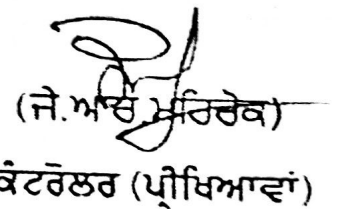 (ਜੇ.ਆਰ.ਮਹਿਰੋਕ)
ਕੰਟਰੋਲਰ (ਪ੍ਰੀਖਿਆਵਾਂ)